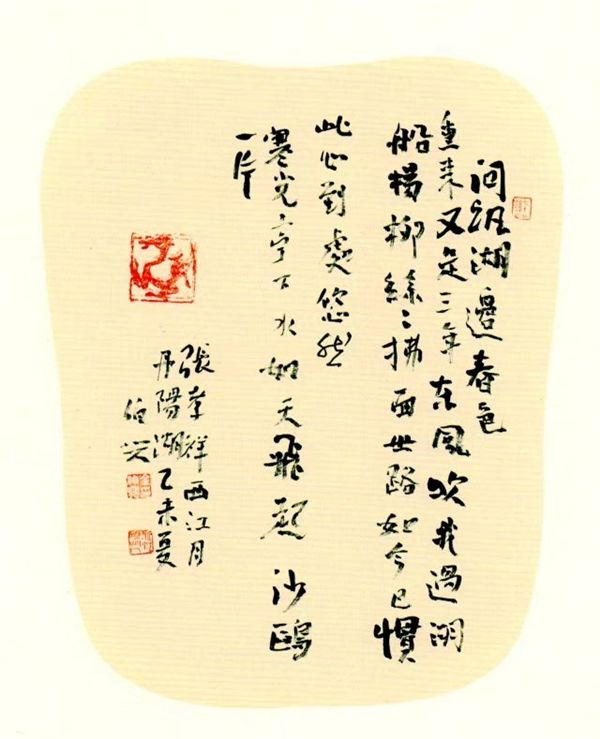 问讯湖邊春色
重来又是三年东風吹我過湖
船楊柳絲〻拂面世路如今已慣
此心到處悠然
寒光亭下水如天飛起沙鷗
一片
張孝祥西江月
丹陽湖乙未夏
伯